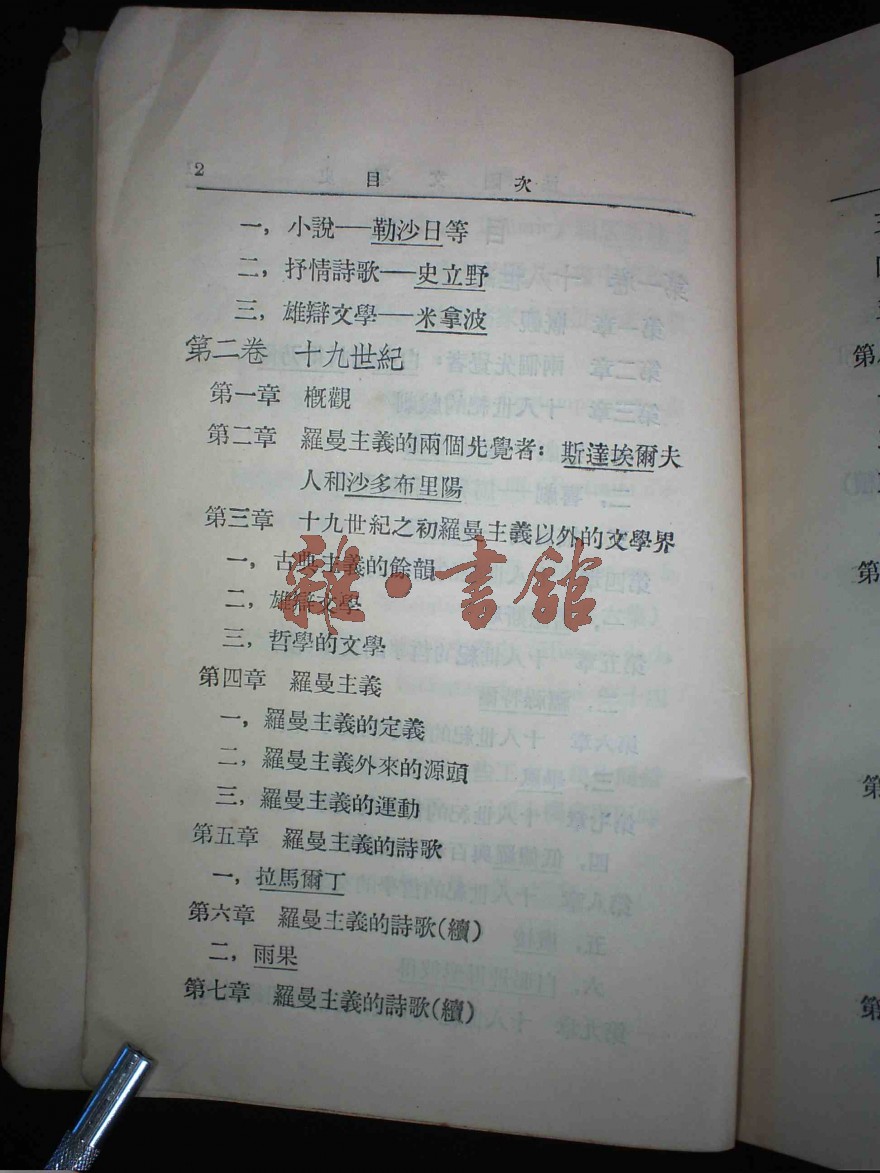 2
目 次
一，小說——勒沙日等
二，抒情詩歌——史立野
三，雄辯文學——米拿波
第二卷 十九世紀
第一章 概觀
第二章 羅曼主義的兩個先覺者：斯達埃爾夫
人和沙多布里陽
第三章 十九世紀之初羅曼主義以外的文學界
一，古典主義的餘韻
二，雄辯文學
三，哲學的文學
第四章 羅曼主義
一，羅曼主義的定義
二，羅曼主義外來的源頭
三，羅曼主義的運動
第五章 羅曼主義的詩歌
一，拉馬爾丁
第六章 羅曼主義的詩歌(續)
二，雨果
第七章 羅曼主義的詩歌(續)
雜·書館
第
第
第
第